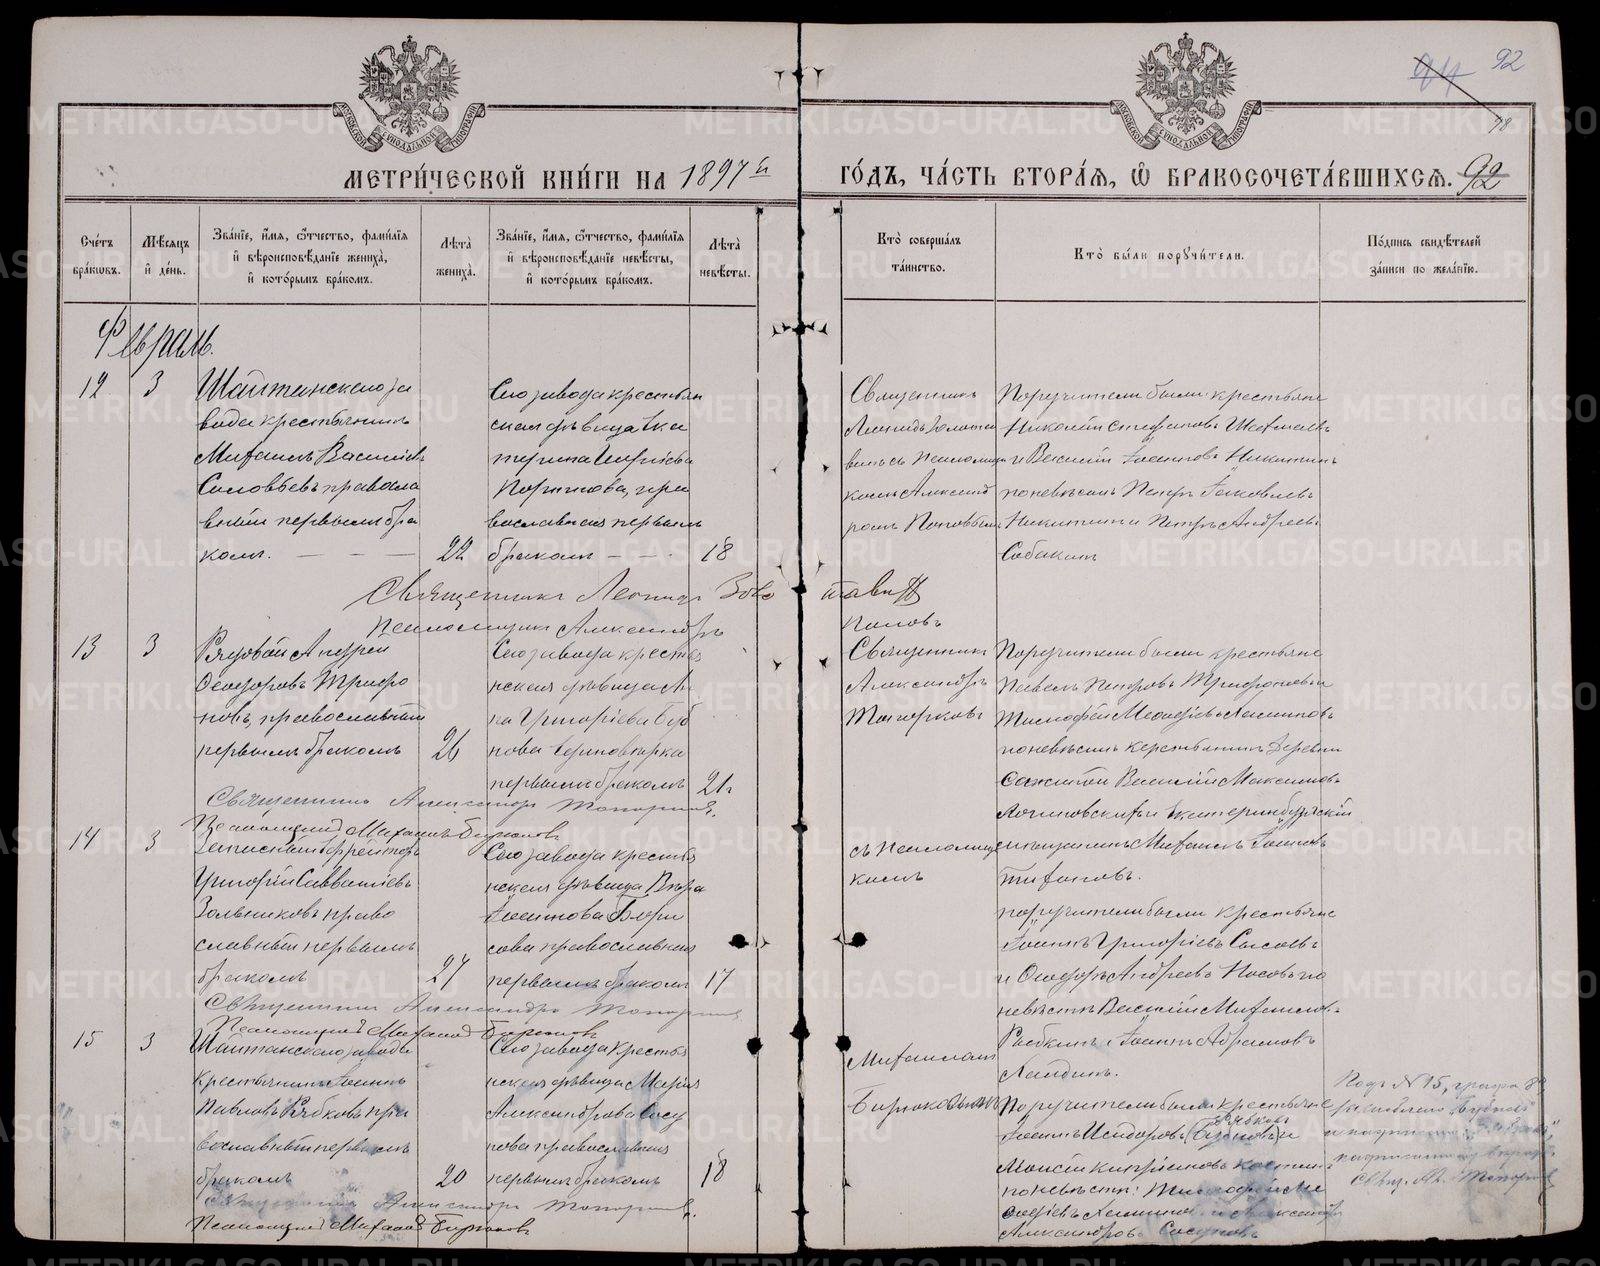 92
МЕТРИЧЕСКОЙ КНИГИ НА 1897 й
ГОДЪ, ЧАСТЬ ВТОРАЯ, Ѡ БРАКОСОЧЕТАВШИХСЯ. 92
Счетъ браковъ.
Мѣсяцъ и день.
Званіе, имя, отчество, фамилія
и вѣроисповѣданіе жениха,
и которымъ бракомъ.
Лѣта жениха.
Званіе, имя, отчество, фамилія
и вѣроисповѣданіе невѣсты,
и которымъ бракомъ.
Лѣта невѣсты.
Кто совершалъ
таинство.
Кто были поручители.
Подпись свидѣтелей
записи по желанію.
Февраль.
12
3
Шайтанскаго за
вода крестьянинъ
Михаилъ Васильевъ
Соловьевъ православ
ный первымъ бра
комъ.
22
Сего завода крестьян
ская дѣвица Ека
терина
первымъ
бракомъ
18
Священникъ
Леонидъ
съ псаломщи
комъ Александ
ромъ Поповымъ
Поручители были: крестьяне
Николай Стефановъ
и Василій Іоанновъ Никитинъ
по невѣстѣ Петръ Іаковлевъ
Никитинъ и Петръ Андреевъ
Собакинъ
Священникъ Леонидъ
Псаломщикъ Александръ
Поповъ
13
3
Рядовой Андрей
Ѳеодоровъ Трифо
новъ, православный
первымъ бракомъ
26
Сего завода крестья
нская дѣвица Ан
на Григоріева Буб
нова единовѣрка
первымъ бракомъ
21
Священникъ
Александръ
Топорковъ
Поручители были крестьяне
Павелъ Петровъ
Тимофей
по невѣстѣ крестьянинъ деревни
Василій Максимовъ
Екатеринбургскій
мѣщанинъ Михаилъ Іоанновъ
Тихоновъ.
Священникъ Александръ Топорковъ.
Псаломщикъ Михаилъ Бирюковъ
14
3
Запасный ефрейторъ
Григорій Савватіевъ
Зольниковъ право
славный первымъ
бракомъ
27
Сего завода крестья
нская дѣвица Вѣра
Іоаннова Бори
сова православная
первымъ бракомъ
17
съ псаломщи
комъ
поручители были крестьяне
Іоаннъ Григоріевъ Сысоевъ
и Ѳеодоръ Андреевъ Носовъ по
невѣстѣ Василій Михаиловъ
Рябкинъ и Іоаннъ Абрамовъ
Священникъ Александръ Топорковъ
Псаломщикъ Михаилъ Бирюковъ
15
3
Шайтанскаго завода
крестьянинъ Іоаннъ
Павловъ Рябковъ пра
вославный первымъ
бракомъ
20
Сего завода крестья
нская дѣвица Марія
Александрова Сосу
нова православная
первымъ бракомъ
18
Михаиломъ
Бирюковымъ
Поручители были крестьяне
Рябковъ
Іоаннъ Исидоровъ (Бубновъ) и
Моисей Кипріановъ
по невѣстѣ: Тимофей
и Александръ
Александровъ Сосуновъ
Подъ № 15, графа
Священникъ Александръ Топорковъ.
Псаломщикъ Михаилъ Бирюковъ
METRIKI.GASO-URAL.RU